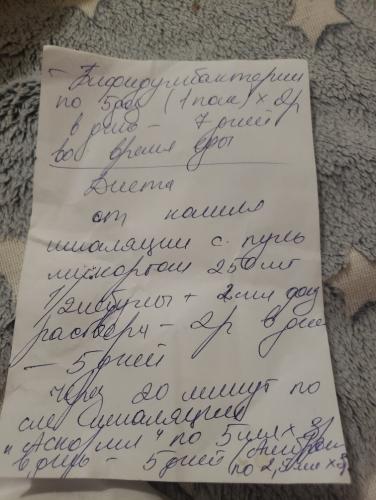 - Бифидумбактерин
по 5доз (1 пак) х 2р
в день - 7 дней
во время еды
Диета
от кашля
ингаляции с пуль
микортом 250 мг
1/2 небулы + 2 мл физ
раствора - 2р в день
- 5 дней
Через 20 минут по
сле ингаляции
"Аскорил" по 5 мл х
в день - 5 дней по 2,5 мл х